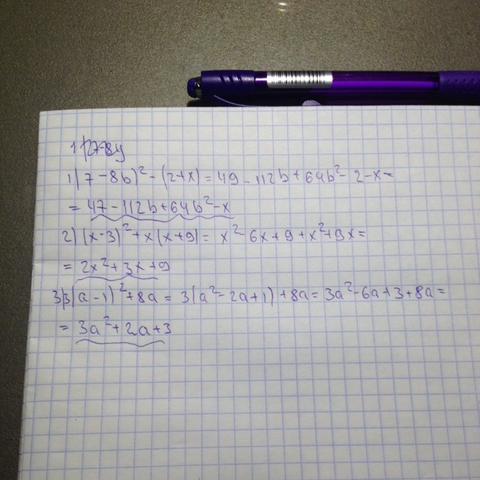 1) (7-8b)² - (2+x) = 49 - 112b + 64b² - 2 - x =
= 47 - 112b + 64b² - x
2) (x-3)² + x(x+9) = x² - 6x + 9 + x² + 9x =
= 2x² + 3x + 9
3) 3(a-1)² + 8a = 3(a² - 2a + 1) + 8a = 3a² - 6a + 3 + 8a =
= 3a² + 2a + 3